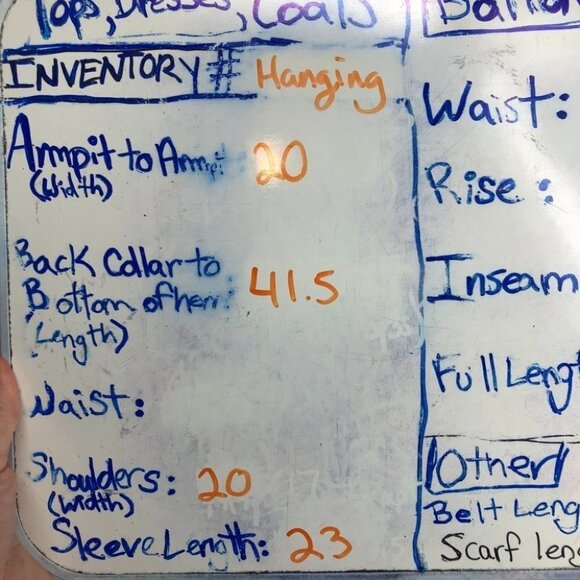 Tops, Dresses, Coats
INVENTORY # Hanging
Armpit to Armpit 20
(Width)
Back Collar to
Bottom of hem: 41.5
(Length)
Waist:
Shoulders: 20
(Width)
Sleeve Length: 23
Waist:
Rise:
Inseam
Full Lengt
Other
Belt Leng
Scarf len